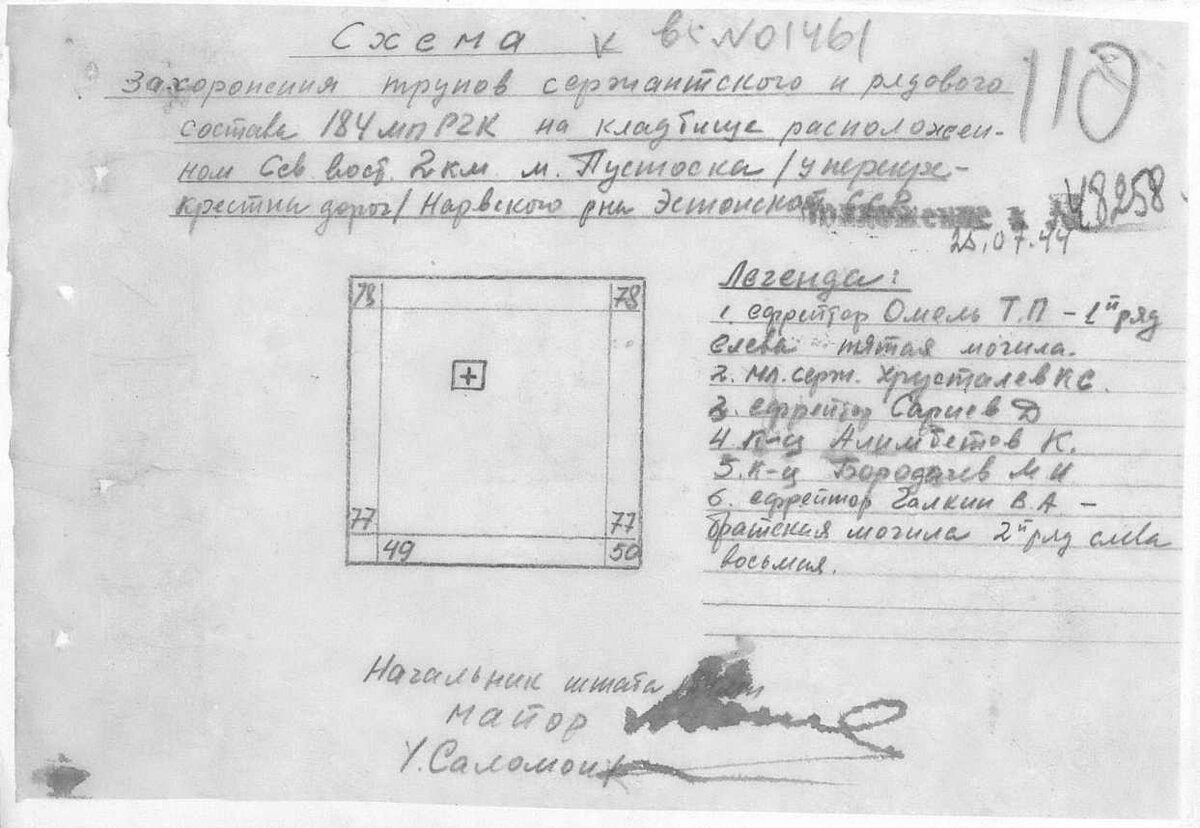 Схема к вх №01461
110
Захоронения трупов сержантского и рядового
состава 184 мпРГК на кладбище расположен-
ном Сев. вост. 2 км. м. Пустоска /у
крестка дорог/ Нарвского рна Эстонской ССР
Приложение к 48258
25.07.44
78 78
77 77
49 50
Легенда:
1. ефрейтор Омель Т.П – 1й ряд
слева пятая могила.
2. мл. серж. Хрусталев К С.
3. ефрейтор Сариев Д
4. К-ц Алимбетов К.
5. К-ц Бородачев М И
6. ефрейтор Галкин В. А –
братская могила 2й ряд слева
восьмая.
Начальник штаба
майор